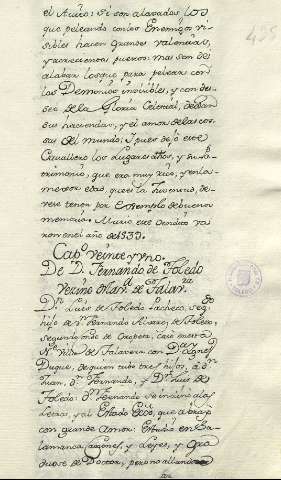 el Autor: si son alabados los
que peleando con los Enemigos vi-
sibles hacen grandes valentias,
y acrecientan fueros: mas son de
alabar los que para pelear con
los Demonios invisibles, y con de-
seo de la Gloria Celestial, dejan
sus haciendas, y el amor de las co-
sas del mundo. Y pues dejó este
Cavallero los lugares altos, y su Pa-
trimonio, que era muy rico, y en la
menor edad, que es la Juventud, de-
vese tener por Exemplo de buena
memoria. Murio este bendito va
ron en el año de 1533.
Capº. veinte y uno.
De D. Fernando de Toledo
Vecino de Talavª.
Dn. Luis de Toledo Pacheco, segdo.
hijo de Dn. Fernando Alvarez de Toledo,
segundo conde de Oropesa, casó en esta
Nª. Villa de Talavera con Dª. Ysabel
Duque, de quien tubo tres hijos, á dn.
Juan, dn. Fernando, y Dn. Luis de
Toledo: dn. Fernando se inclinó á las
Letras, y al Estado Ecco, que abrazó
con grande Amor. Estudió en Sa-
lamanca Canones, y Leyes, y Gra
duose de Doctor, pero no allando